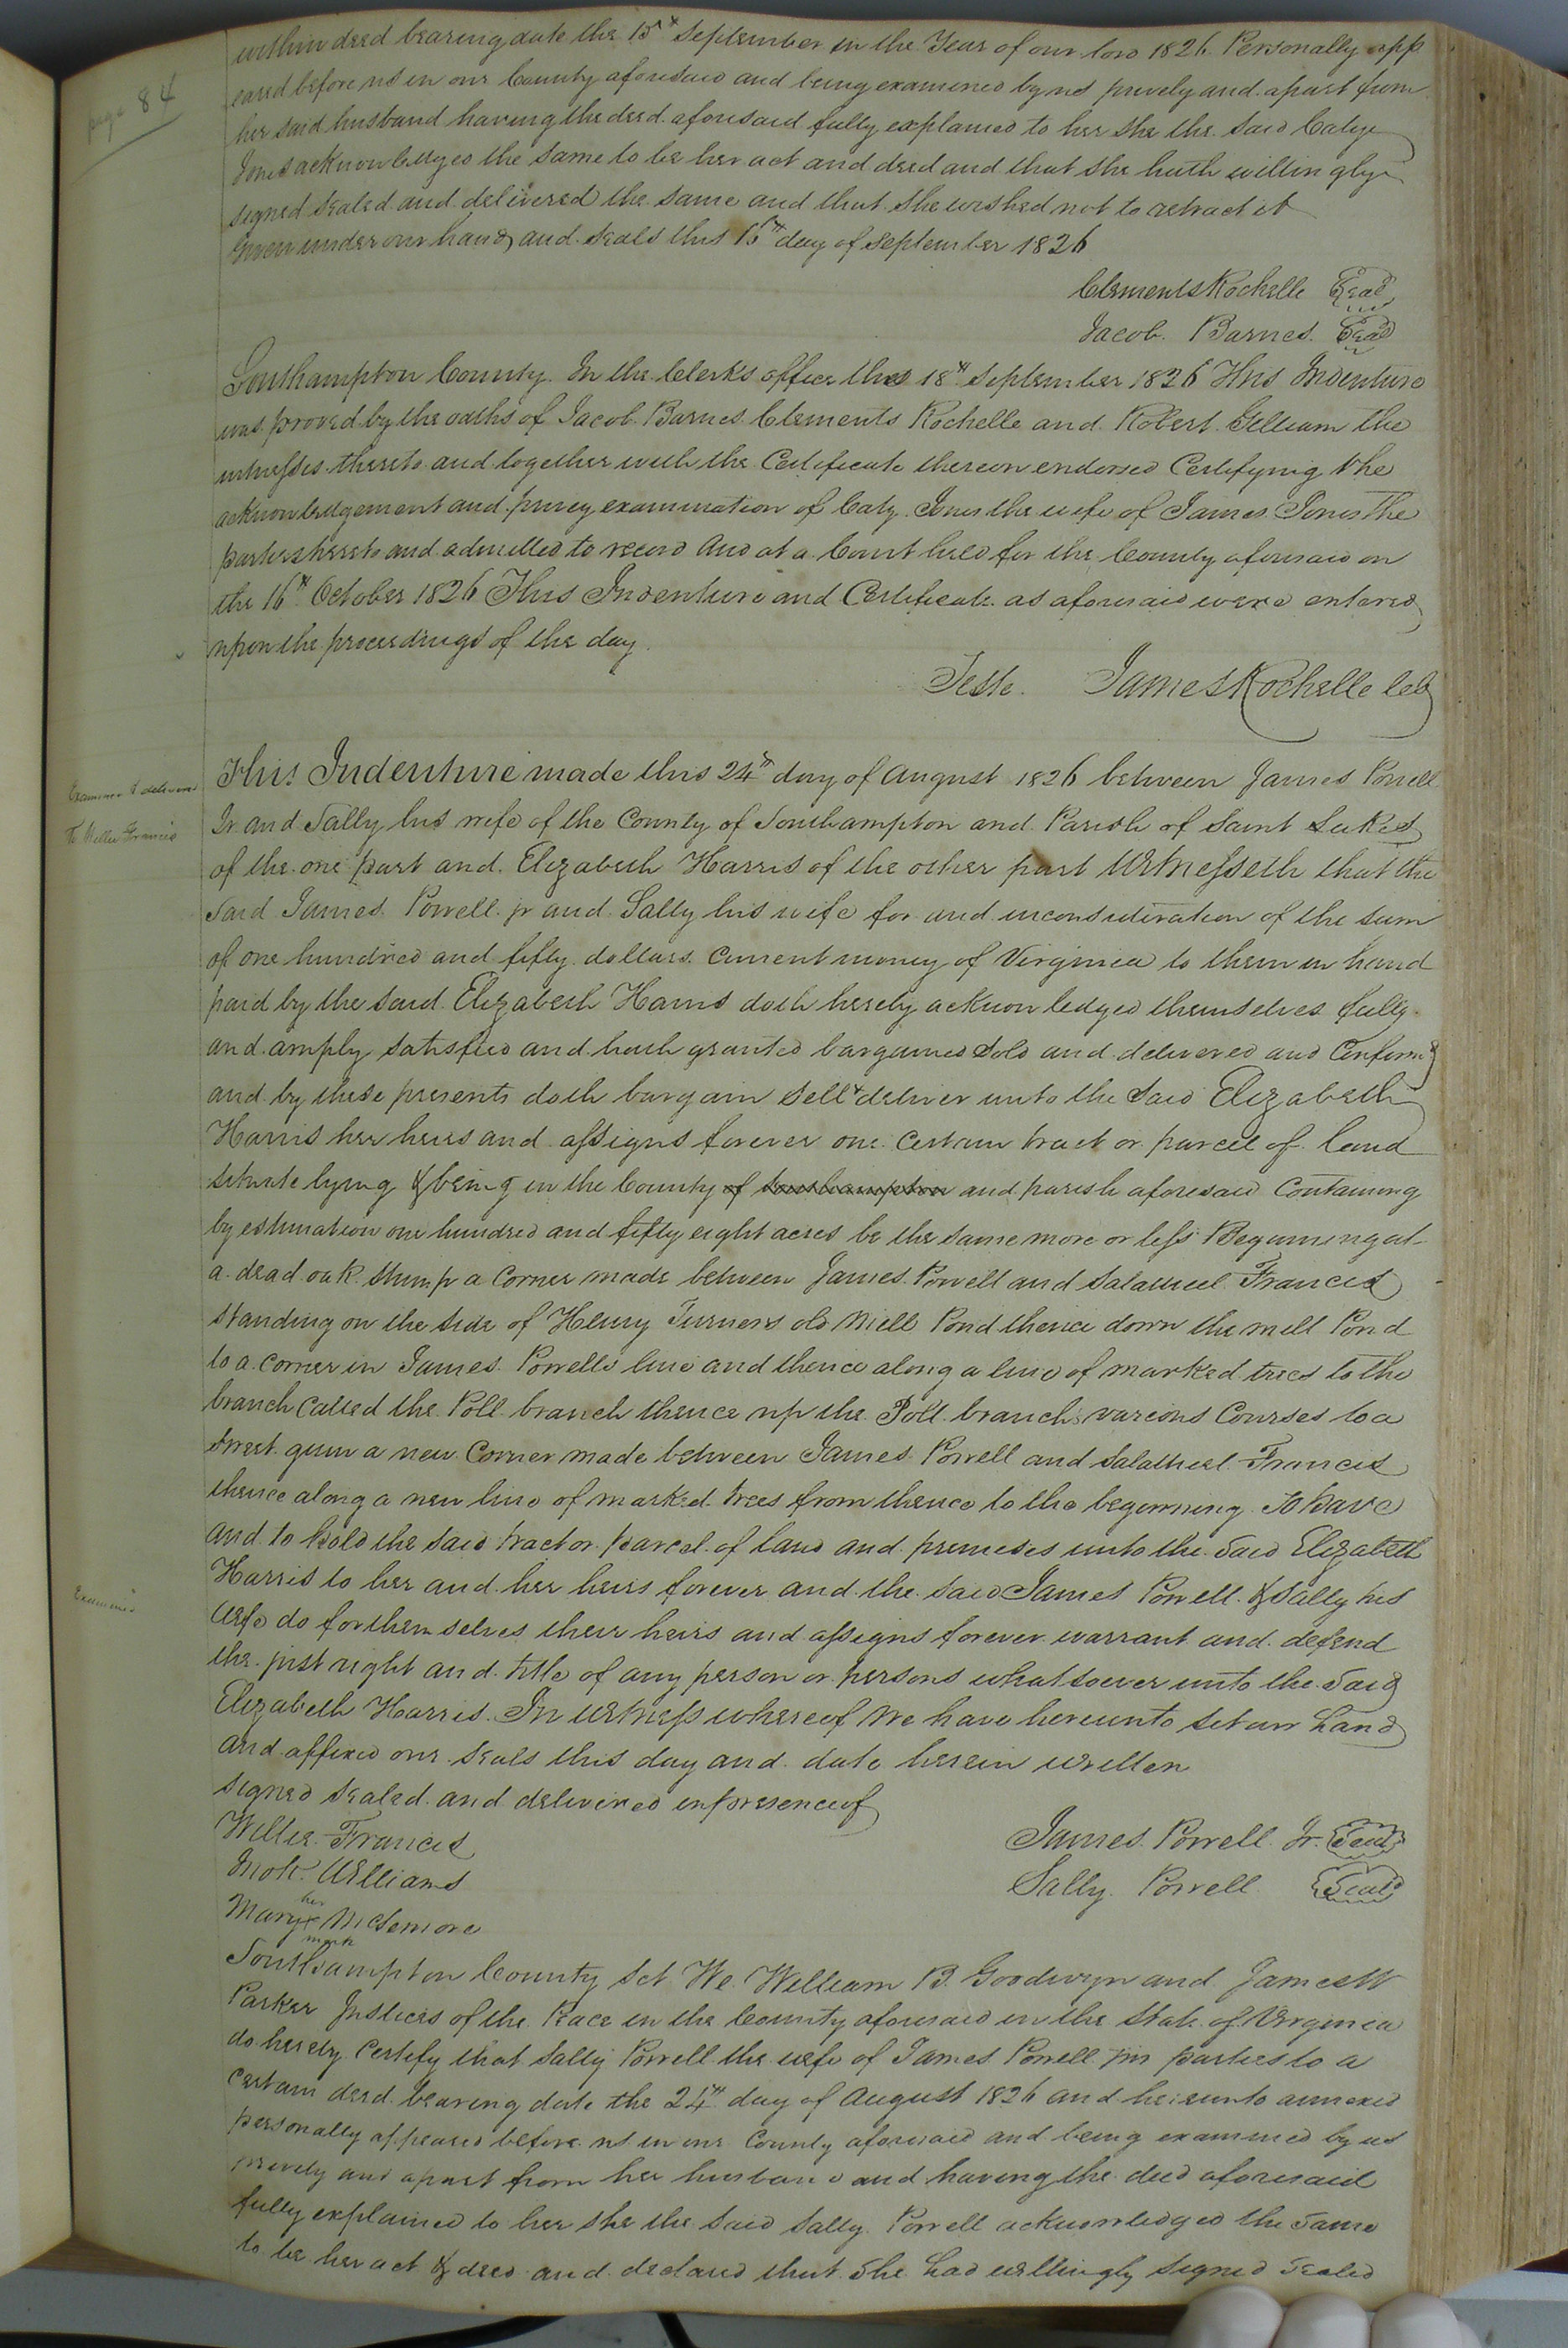 page 84
within deed bearing date the 15th September in the Year of our lord 1826 Personally app
eared before us in our County aforesaid and being examined by us prively and apart from
her said husband having the deed aforesaid fully explained to her she the said Caty
Jones acknowledged the same to be her act and deed and that she hath willingly
signed sealed and delivered the same and that she wished not to retract it
Given under our hands and seals this 15th day of September 1826
Clements Rochelle Seal
Jacob Barnes. Seal
Southampton County. In the Clerks office this 18th September 1826 This Indenture
was proved by the oaths of Jacob Barnes Clements Rochelle and Robert Gilliam the
witnesses thereto and together with the Certificate thereon endorsed Certifying the
acknowledgement and privey examination of Caty Jones the wife of James Jones the
parties thereto and admitted to record And at a Court held for the County aforesaid on
the 16th October 1826 This Indenture and Certificate as aforesaid were entered
upon the proceedings of the day.
Teste. James Rochelle
Examined & delivered
To Willie Francis
This Indenture made this 24th day of August 1826 between James Powell
Jr and Sally his wife of the County of Southampton and Parish of Saint Lukes
of the one part and Elizabeth Harris of the other part Witnesseth that the
said James Powell jr and Sally his wife for and inconsideration of the sum
of one hundred and fifty dollars current money of Virginia to them in hand
paid by the said Elizabeth Harris doth hereby acknowledged themselves fully
and amply satisfied and hath granted bargained sold and delivered and Confirmd
and by these presents doth bargain sell & deliver unto the said Elizabeth
Harris her heirs and assigns forever one certain tract or parcel of land
situate lying & being in the County of Southampton and parish aforesaid Containing
by estimation one hundred and fifty eight acres be the same more or less Beginning at
a dead oak stump a Corner made between James Powell and Salathiel Francis
standing on the side of Henry Turners old Mill Pond thence down the mill Pond
to a corner in James Powells line and thence along a line of marked trees to the
branch called the Poll branch thence up the Poll branchs various Courses to a
sweet gum a new Corner made between James Powell and Salathiel Francis
thence along a new line of marked trees from thence to the beginning To have
and to hold the said tract or parcel of land and premises unto the said Elizabeth
Examined
Harris to her and her heirs forever and the said James Powell & Sally his
wife do for themselves their heirs and assigns forever warrant and defend
the just right and title of any person or persons whatsoever unto the said
Elizabeth Harris. In Witness whereof We have hereunto set our hand
and affixed our seals this day and date herein written
signed sealed and delivered in presence of
Willie Francis James Powell Jr. Seal
Williams Sally Powell Seal
her
Mary x McLemore
mark
Southampton County Sct. We William B. Goodwyn and James W
Parker Justices of the Peace in the County aforesaid in the State of Virginia
do hereby Certify that Sally Powell the wife of James Powell jr parties to a
certain deed bearing date the 24th day of August 1826 and hereunto annexed
personally appeared before us in our County aforesaid and being examined by us
privily and apart from her husband and having the deed aforesaid
fully explained to her she the said Sally Powell acknowledged the same
to be her act & deed and declared that she had willingly signed sealed